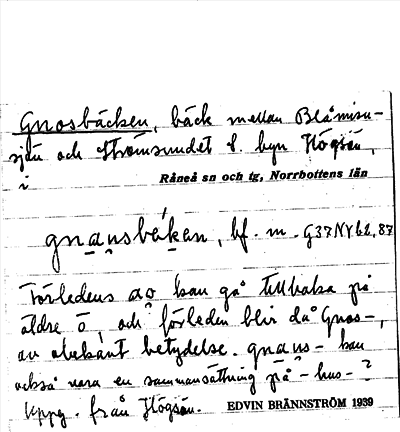 Gnosbäcken, bäck mellan Blåmisu-
sjön och Strömsundet v. byn Högsön,
i Råneå sn och tg, Norrbottens län
gnaɷsbẹ́ken, bf. m. G37NY62,87
Förledens ao kan gå tillbaka på
äldre ō, och förleden blir då Gnos-,
av obekant betydelse. gnaɷs- kan
också vara en sammansättning på -hus-?
Uppg. från Högsön. EDVIN BRÄNNSTRÖM 1939